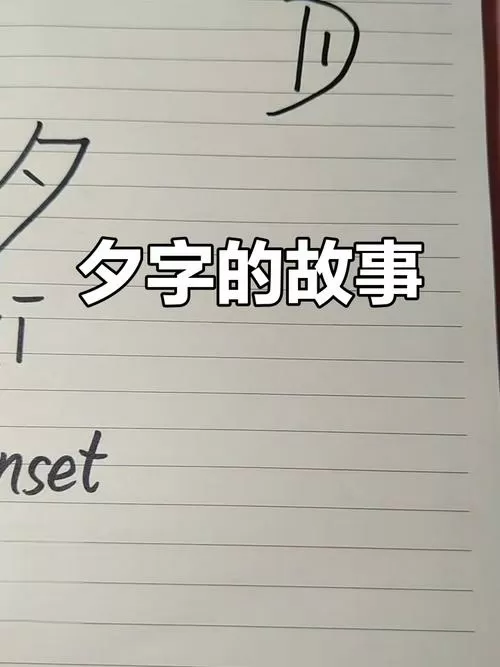 夕
夕字的故事
ī
nset